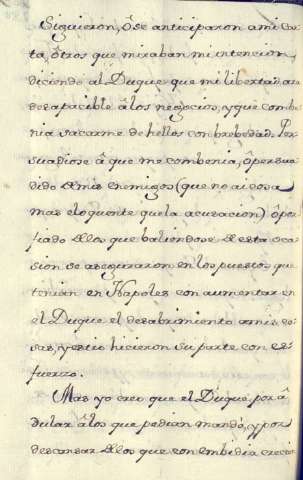 Siguieron, ô se anticiparon a mi Car
ta, ôtros que miraban mi intencion,
diciendo al Duque que mi libertad era
desapacible âlos negocios, y que combe
nia sacarme de hellos con brebedad. Per
suadiose â que me combenia, o persua
dido de mis enemigos (que no ai cosa
mas eloquente que la acusacion) ô por
fiado de los que baliendose de esta oca
sion se aseguraron en los puestos que
tenian en Napoles con aumentar en
el Duque el desabrimiento a mis co
sas, y estio hicieron su parte con es
fuerzo.
Mas yo creo que el Duque, por â
dular âlos que pedian mando, y por
descansar de los que con embidia crecian